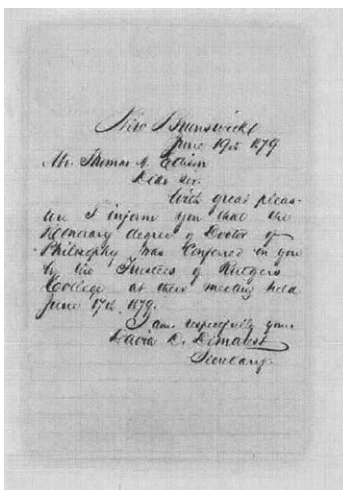 New Brunswick
June 19th 1879
Mr. Thomas A. Edison
Dear Sir.
With great pleas-
ure I inform you that the
Honorary degree of Doctor of
Philosophy was Confered on you
by the Trustees of Rutgers
College at their meeting held
June 17th 1879.
I am respectfully yours
David D. Demarest
Secretary.